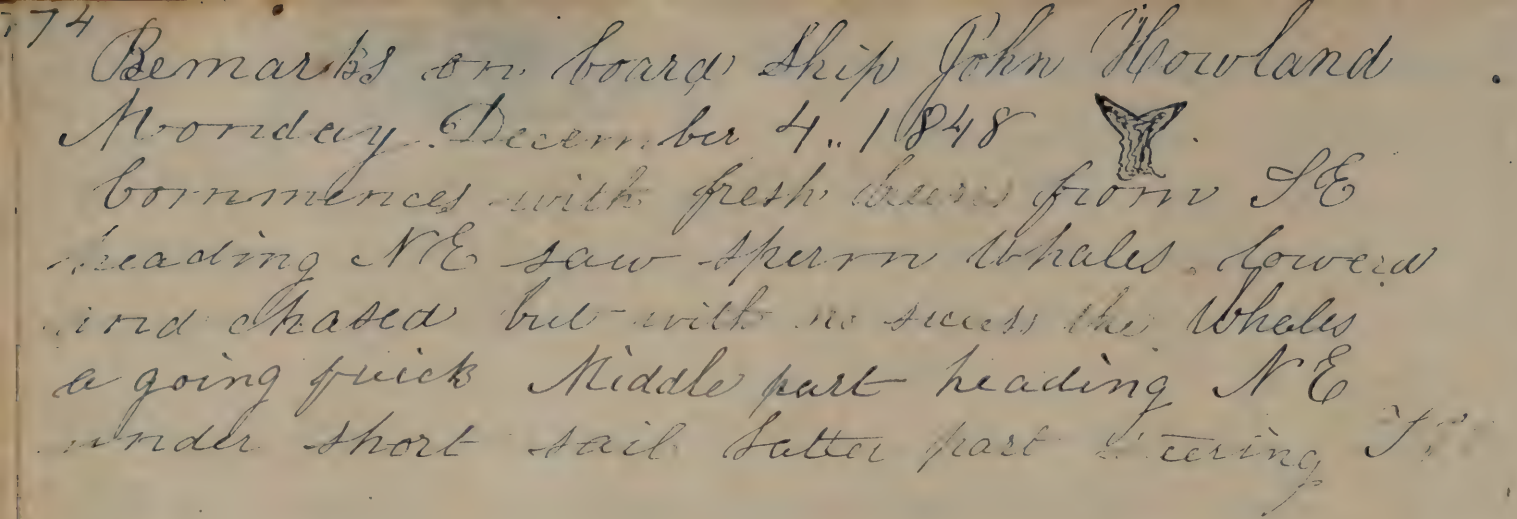 74
Remarks on board Ship John Howland
Monday December 4.. 1848
Commences with fresh from SE
heading NE saw sperm Whales lowerd
and Chased but with no sucess the Whales
a going quick Middle part heading NE
under short sail Latter part steering